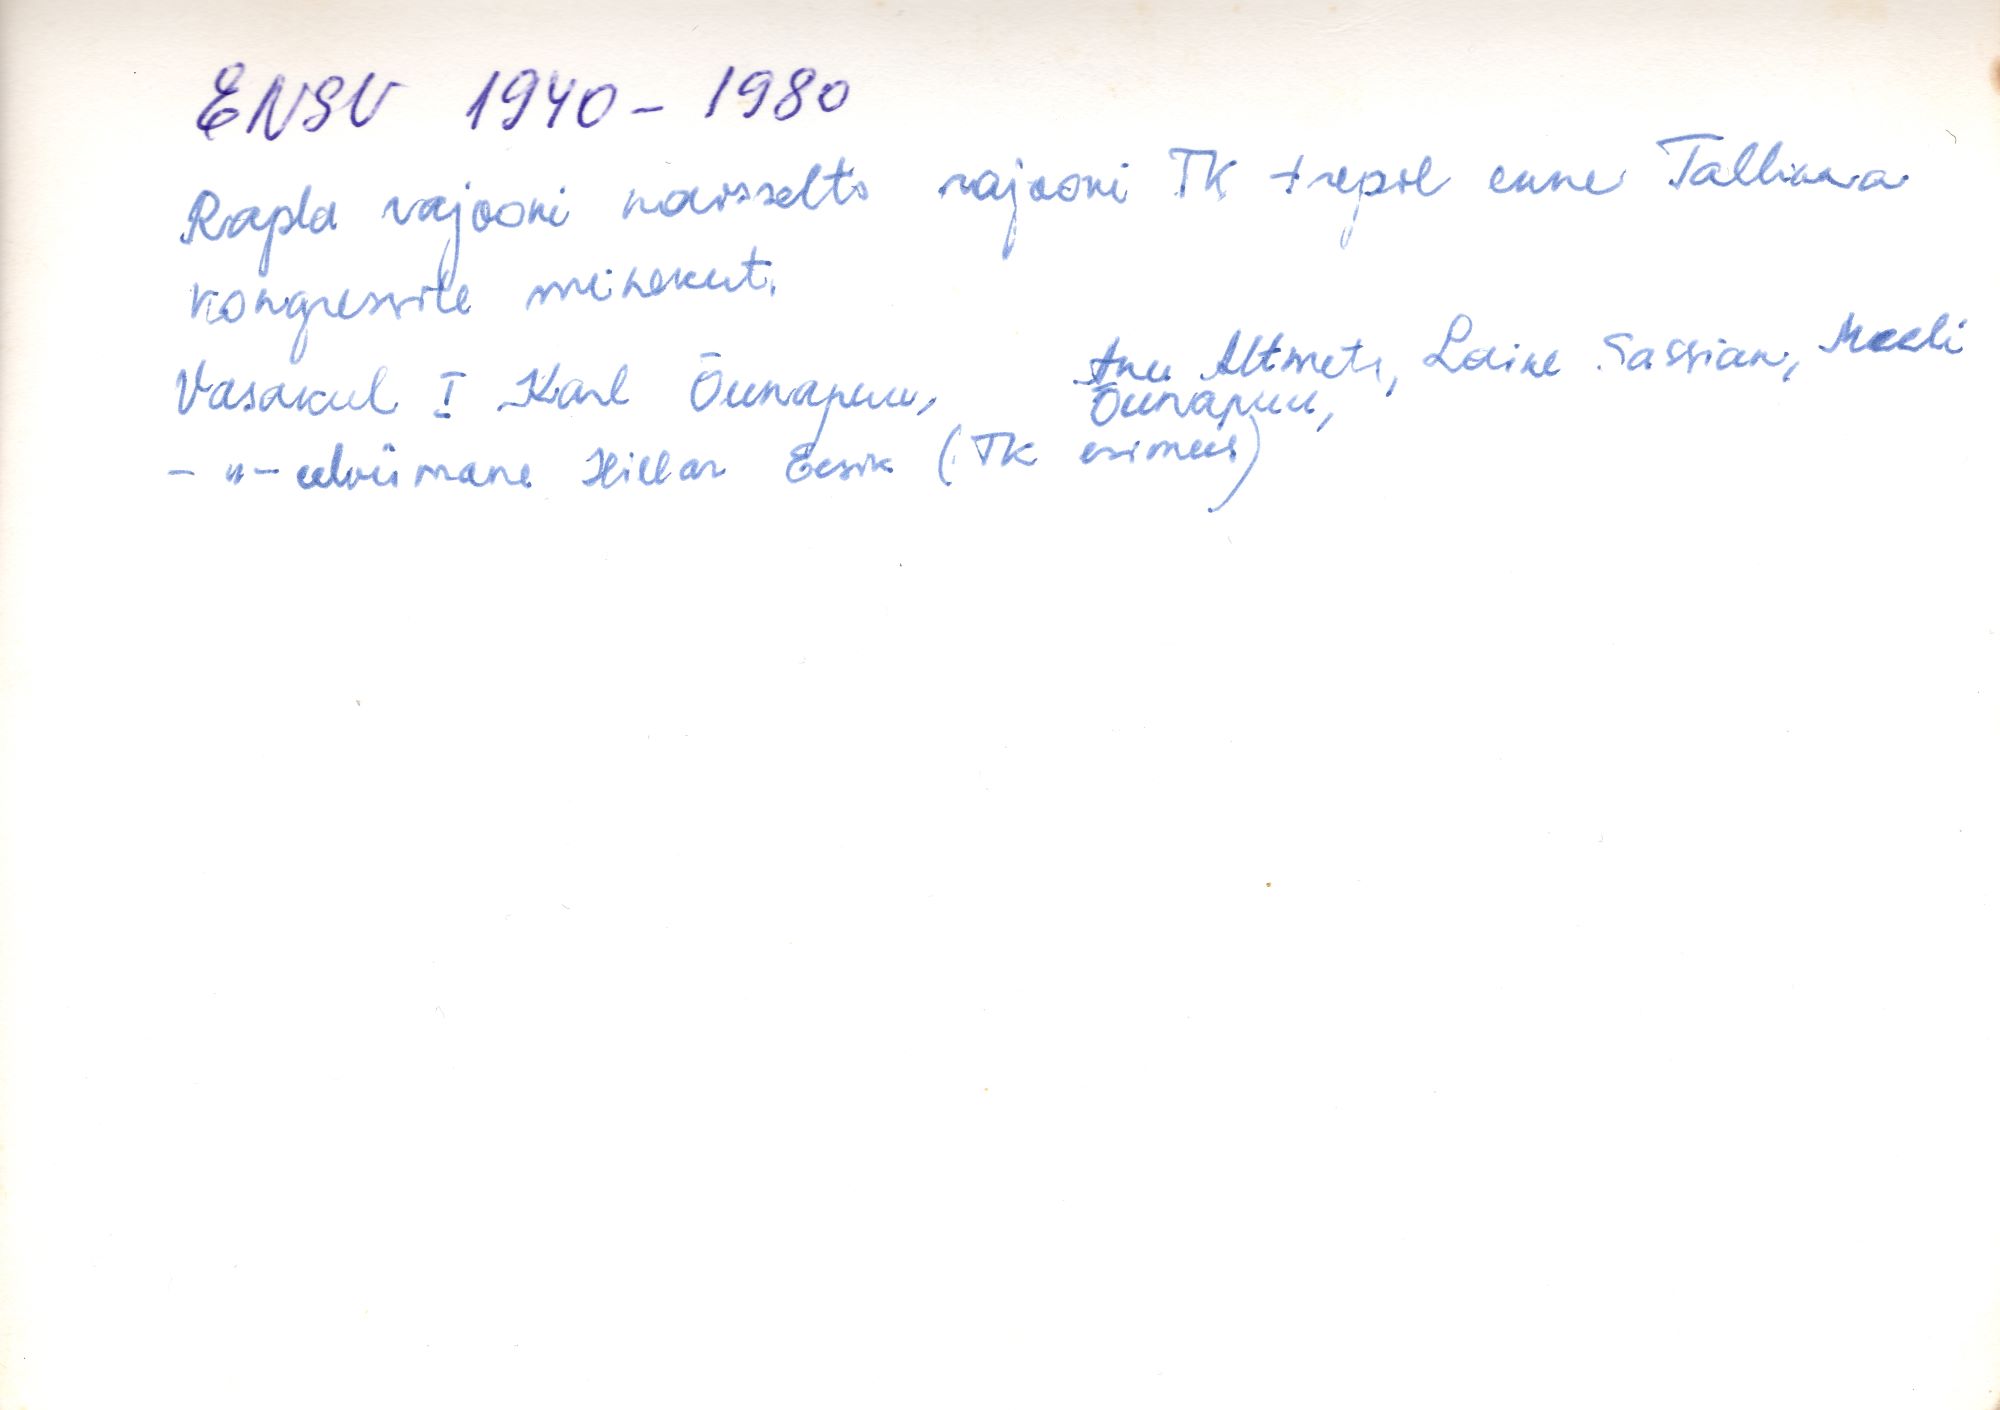 ENSV 1940 - 1980
Rapla rajooni naisselts rajooni TK trepil enne Tallinna
kongressile minekut.
Vasakul I Karl Õunapuu, Anu Altmets, Laine Sassian, Meeli
Õunapuu,
- " - eelviimane Hillar Eesik (TK esimees)